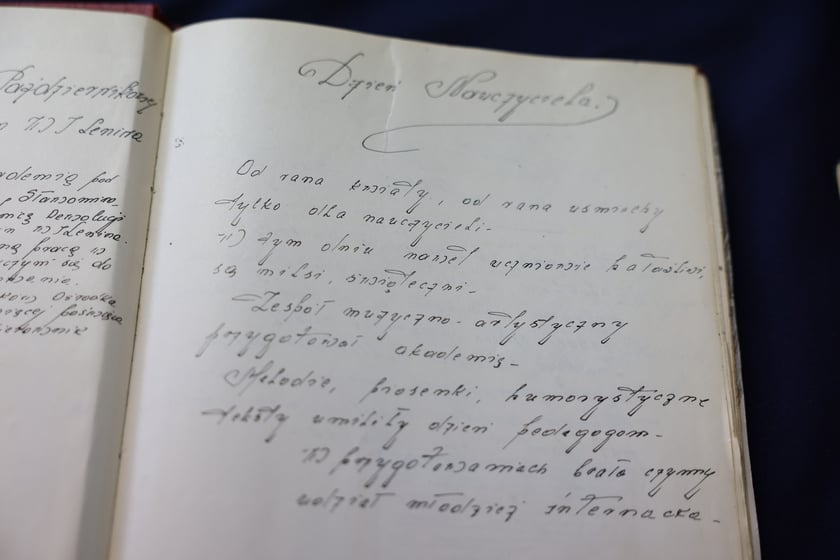 Październikowy
W I Lenina
akademią pod
Stanowiro
Rewolucji
W I Lenina.
ną pracą w
czymi się do
Ośrodka
Dzień Nauczyciela.
Od rana kwiaty, od rana uśmiechy
tylko dla nauczycieli.
W tym dniu nawet uczniowie hałaśliwi,
są milsi, świąteczni.
Zespół muzyczno-artystyczny
przygotował akademię.
Melodie, piosenki, humorystyczne
teksty umiliły dzień pedagogom.
W przygotowaniach brała czynny
udział młodzież internacka.